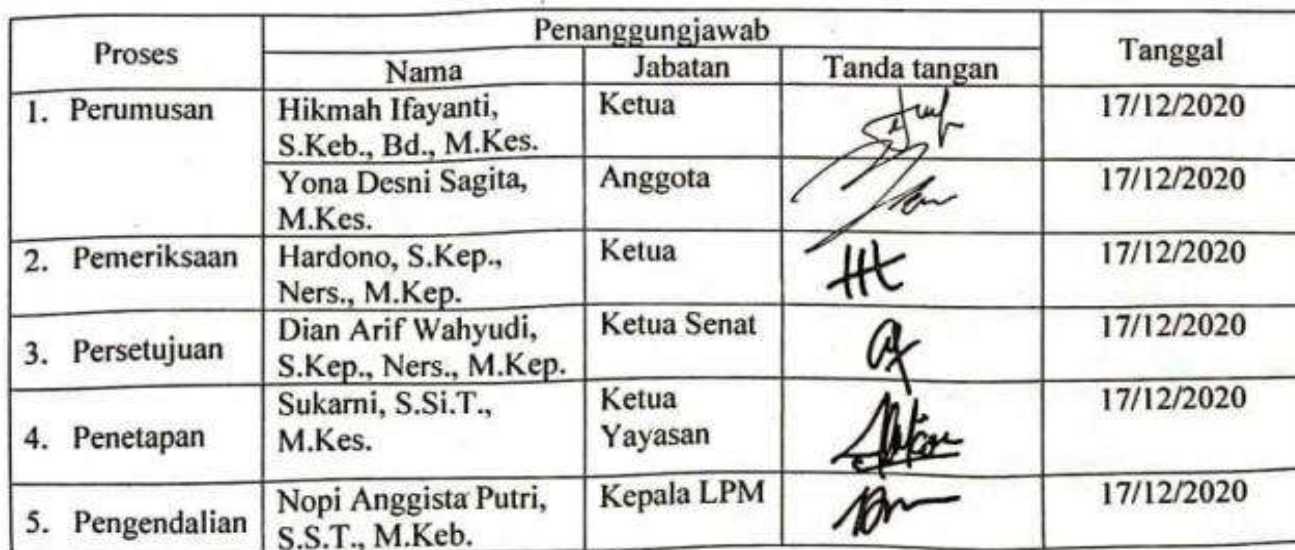 Proses
Penanggungjawab
Tanggal
Nama
Jabatan
Tanda tangan
1. Perumusan
Hikmah Ifayanti,
S.Keb., Bd., M.Kes.
Ketua
17/12/2020
Yona Desni Sagita,
M.Kes.
Anggota
17/12/2020
2. Pemeriksaan
Hardono, S.Kep.,
Ners., M.Kep.
Ketua
17/12/2020
3. Persetujuan
Dian Arif Wahyudi,
S.Kep., Ners., M.Kep.
Ketua Senat
17/12/2020
4. Penetapan
Sukarni, S.Si.T.,
M.Kes.
Ketua
Yayasan
17/12/2020
5. Pengendalian
Nopi Anggista Putri,
S.S.T., M.Keb.
Kepala LPM
17/12/2020